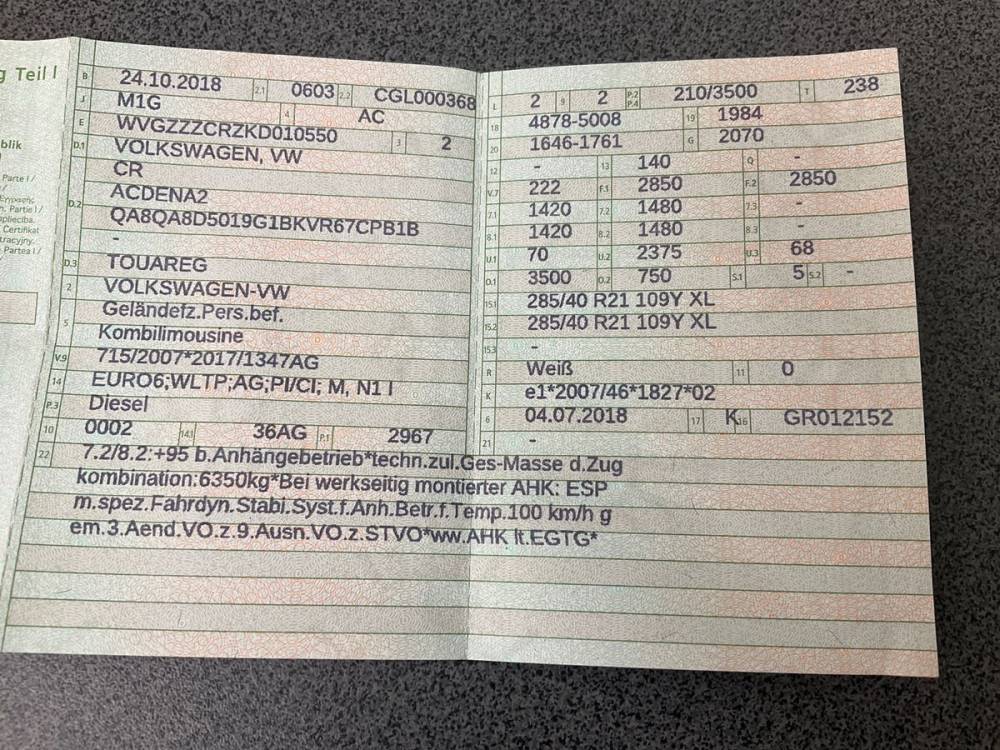 g Teil I
blik
Parte I /
n. Partie I /
apliecība.
Certifikat
tracyjny.
Partea I /
B 24.10.2018 2.1 0603 2.2 CGL000368
J M1G 4 AC
E WVGZZZCRZKD010550 3 2
D.1 VOLKSWAGEN, VW
CR
D.2 ACDENA2
QA8QA8D5019G1BKVR67CPB1B
-
D.3 TOUAREG
2 VOLKSWAGEN-VW
5 Geländefz.Pers.bef.
Kombilimousine
V.9 715/2007*2017/1347AG
14 EURO6;WLTP;AG;PI/CI; M, N1 I
P.3 Diesel
10 0002 14.1 36AG P.1 2967
L 2 9 2 P.2 P.4 210/3500 T 238
18 4878-5008 19 1984
20 1646-1761 G 2070
12 - 13 140 Q -
V.7 222 F.1 2850 F.2 2850
7.1 1420 7.2 1480 7.3 -
8.1 1420 8.2 1480 8.3 -
U.1 70 U.2 2375 U.3 68
O.1 3500 O.2 750 S.1 5 S.2 -
15.1 285/40 R21 109Y XL
15.2 285/40 R21 109Y XL
15.3 -
R Weiß 11 0
K e1*2007/46*1827*02
6 04.07.2018 17 K 16 GR012152
21 -
22 7.2/8.2:+95 b.Anhängebetrieb*techn.zul.Ges-Masse d.Zug
kombination:6350kg*Bei werkseitig montierter AHK: ESP
m.spez.Fahrdyn.Stabi.Syst.f.Anh.Betr.f.Temp.100 km/h g
em.3.Aend.VO.z.9.Ausn.VO.z.STVO*ww.AHK lt.EGTG*